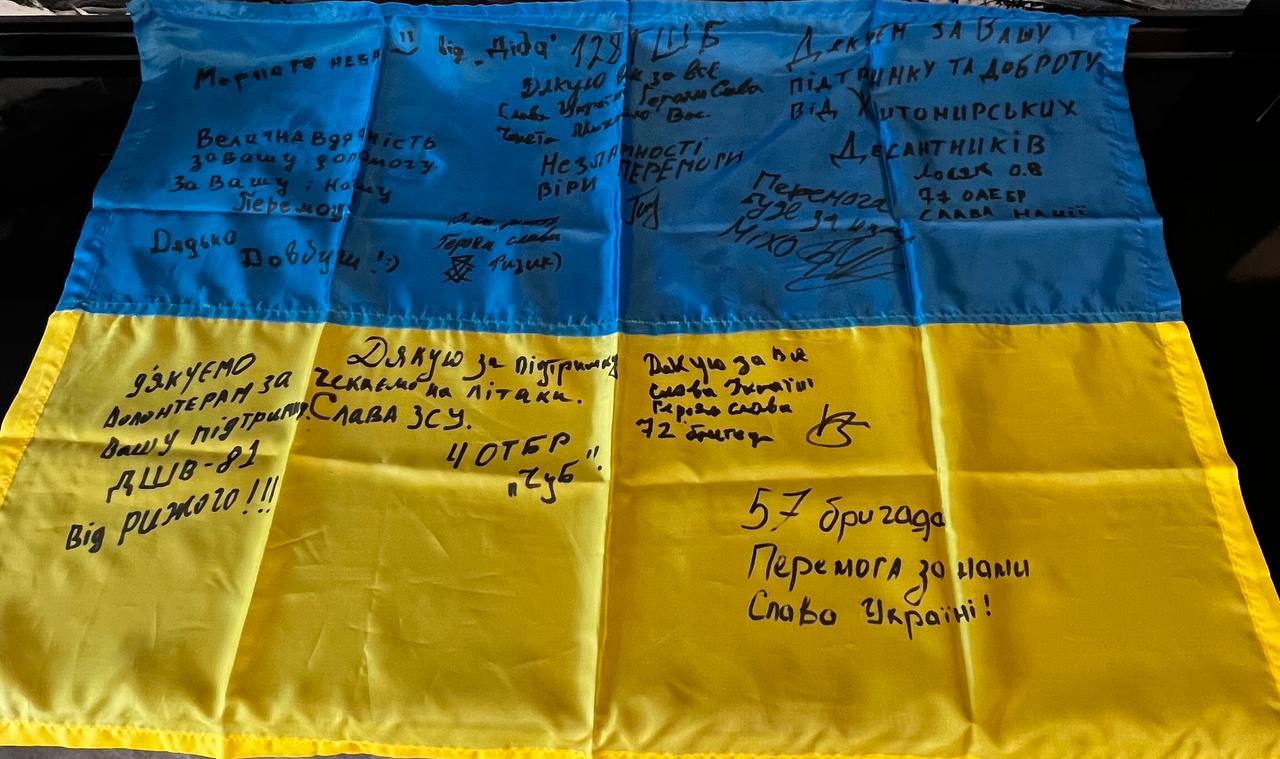 Мирного неба
від „Діда"
128 ГШБ
Дякую Вам за все
Слава Україні Героям Слава
Вас.
Незламності
Віри Перемоги
Дякуєм за Вашу
підтримку та доброту
від Житомирських
Десантників
Лосяк О.В
77 ОАЕБР
Слава нації
Велична вдячність
за вашу допомогу
За Вашу і нашу
Перемогу
Дядько
Довбуш!:)
Героям слава
Физик)
Перемога
буде за нами
Міхо
дякуємо
волонтерам за
вашу підтримку.
ДШВ-81
від РИЖОГО!!!
Дякую за підтримку
чекаємо на літаки.
Слава ЗСУ.
4 ОТБР
„Чуб".
Дякую за все
слава Україні
Героям слава
72 бригада
57 бригада
Перемога за нами
Слава Україні!